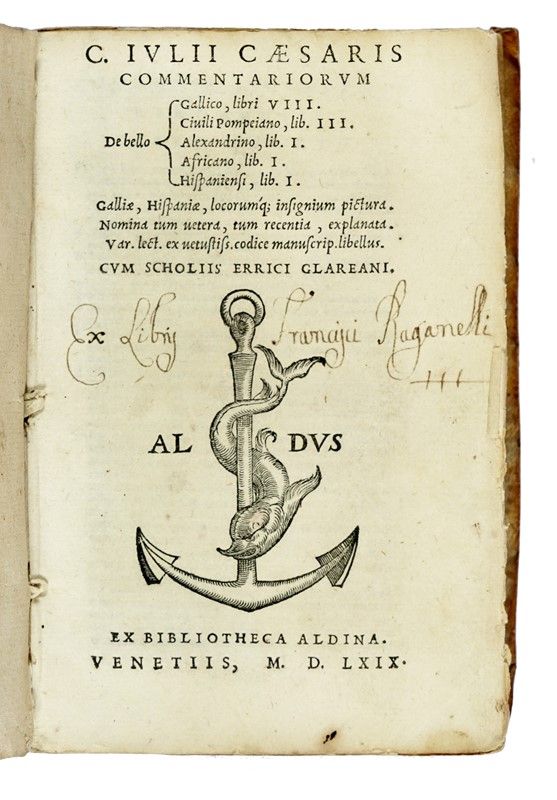 C. IVLII CÆSARIS
COMMENTARIORVM
De bello
Gallico, libri VIII.
Ciuili Pompeiano, lib. III.
Alexandrino, lib. I.
Africano, lib. I.
Hispaniensi, lib. I.
Galliæ, Hispaniæ, locorumq; insignium pictura.
Nomina tum uetera, tum recentia, explanata.
Var. lect. ex uetustiss. codice manuscrip. libellus.
CVM SCHOLIIS ERRICI GLAREANI.
Ex Libris Francisci Raganelli
AL DVS
EX BIBLIOTHECA ALDINA.
VENETIIS, M. D. LXIX.